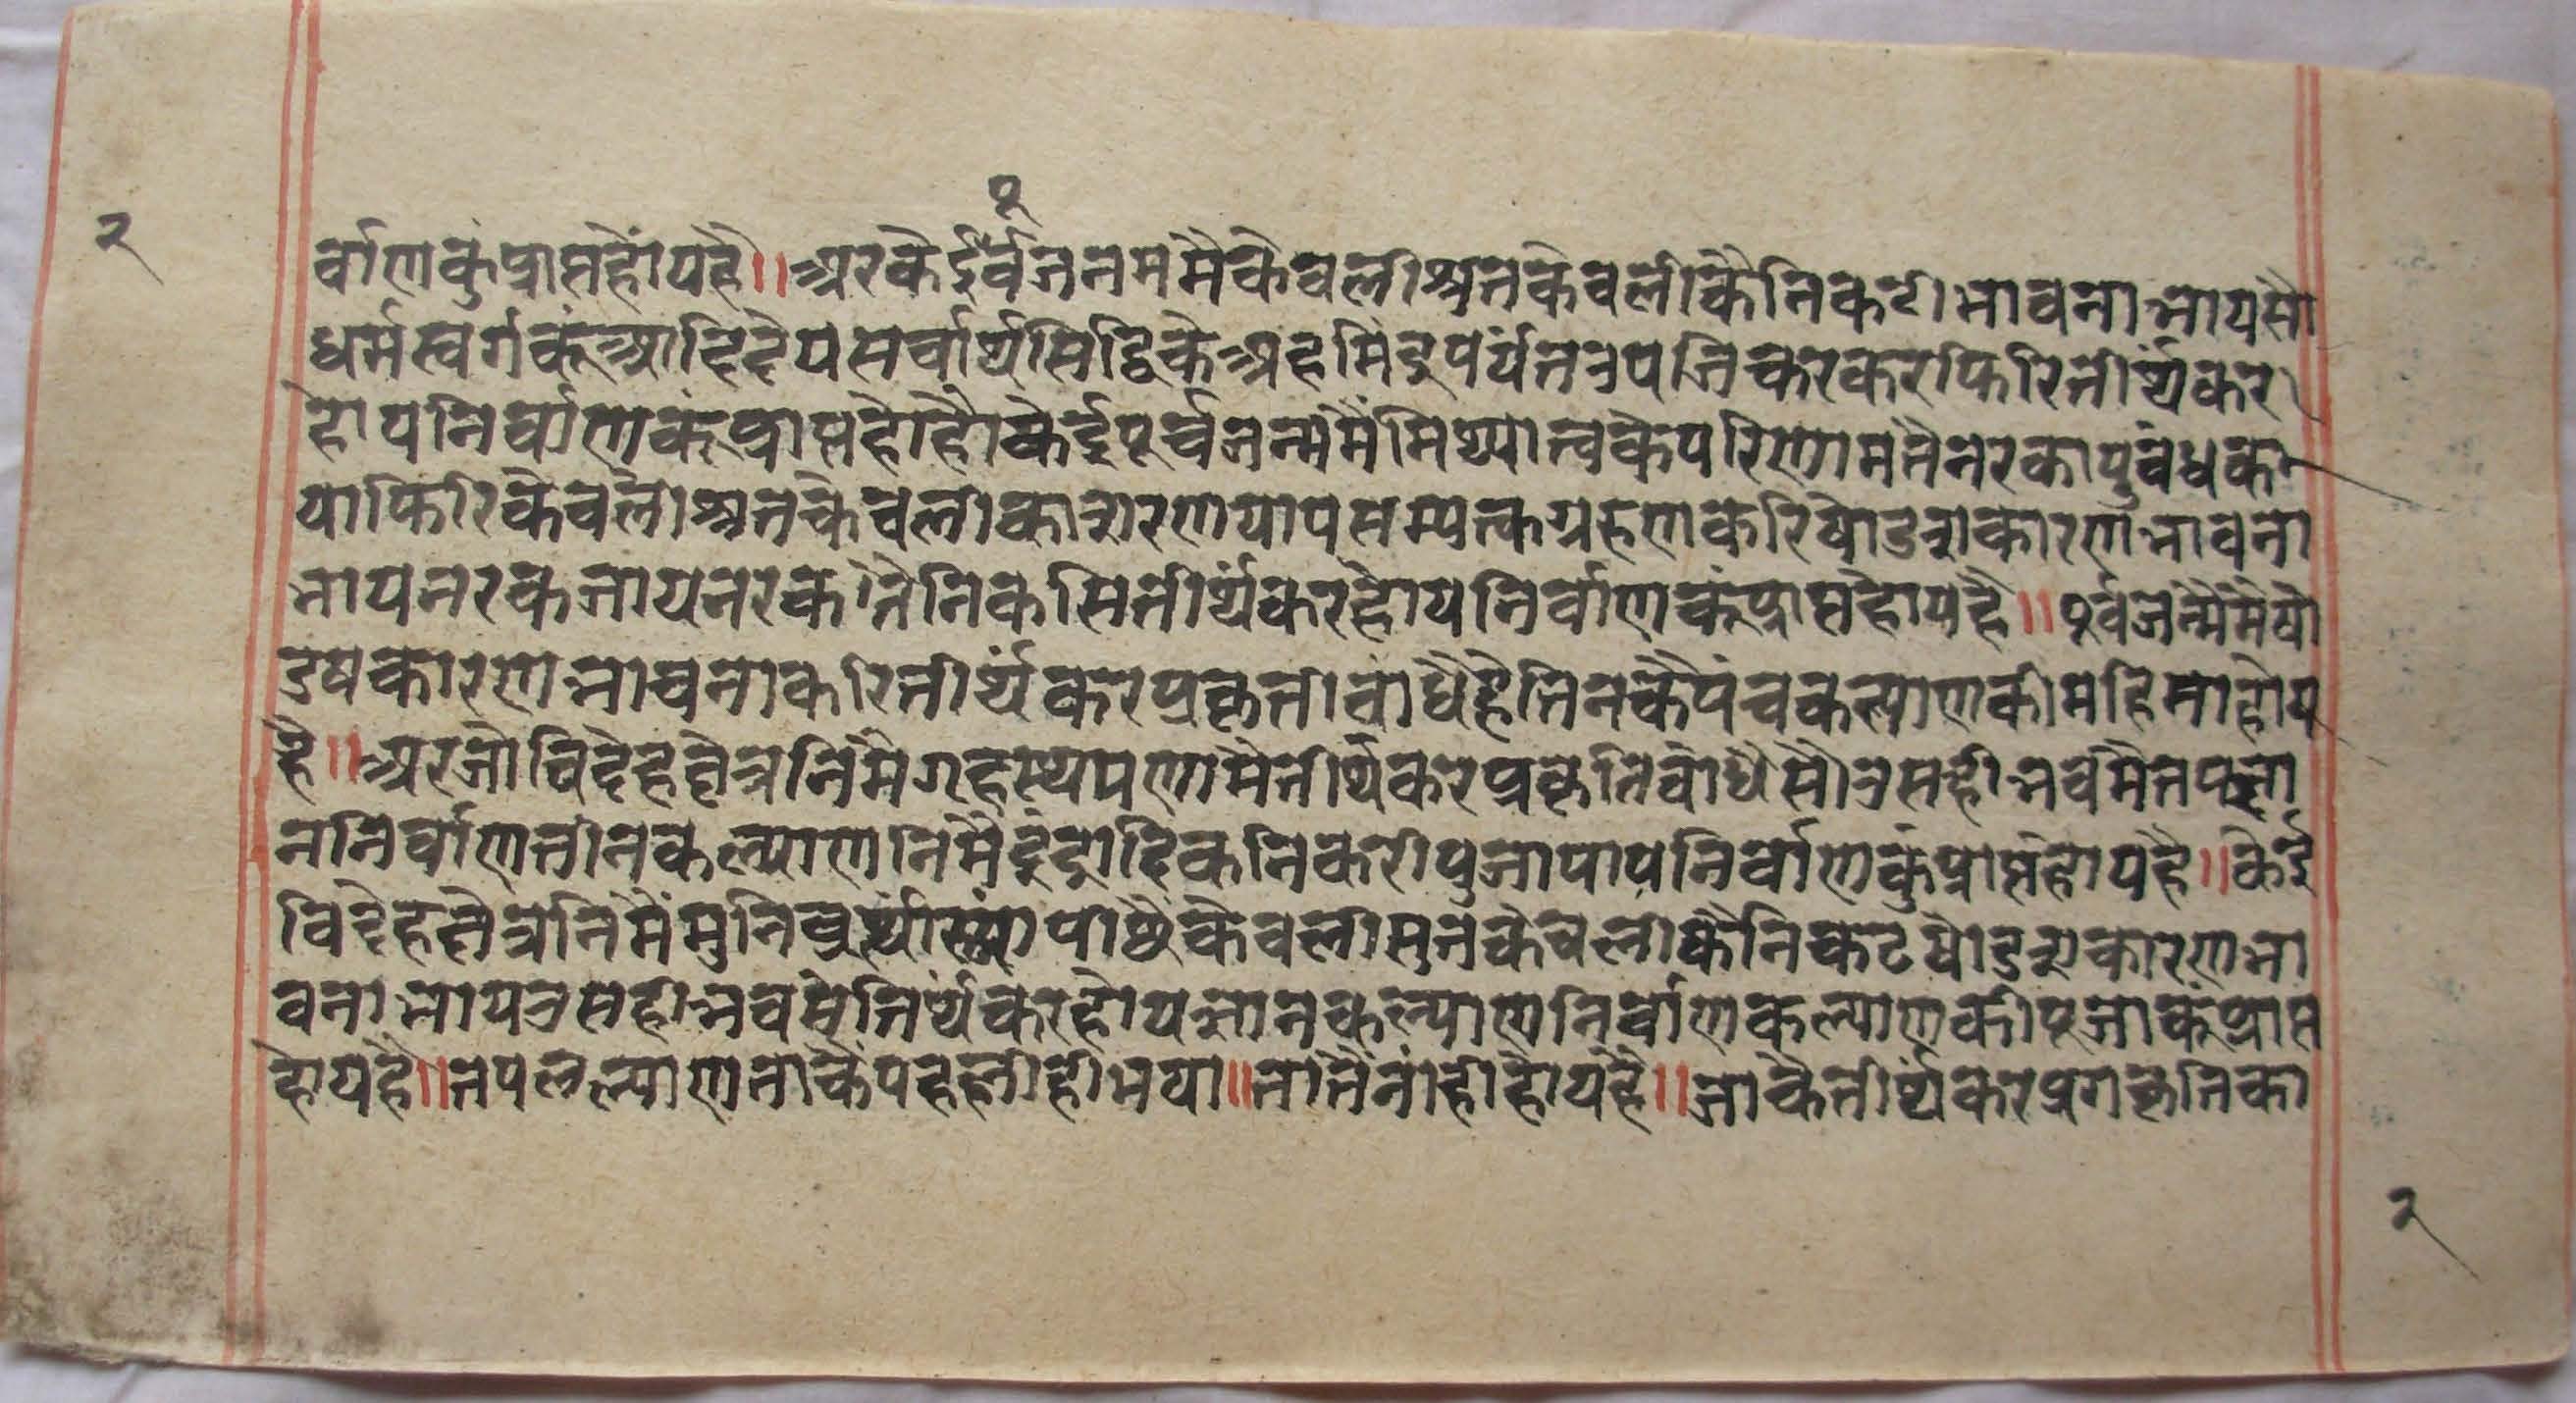 पू
२
र्वाणकुंप्राप्तहोयहै॥अरकेईर्वजनममैकेवलीश्रुतकेवलीकैनिकटीभावनाभायसौ
धर्मस्वर्गकूंआदिदेयसर्वार्थसिद्धिकेअहमिंद्रपर्यंतउपजिकरकरफिरितीर्थकर
होयनिर्वाणकूंप्राप्तहोहैकेईपूर्वजन्ममैंमिथ्यात्वकेपरिणामतैनरकायुबंधक
याफिरिकेवलीश्रुतकेवलीकाशरणपायसम्यत्कग्रहणकरिषोडशकारणभावना
भायनरकजायनरकतैनिकसितीर्थकरहोयनिर्वाणकूंप्राप्तहोयहै॥पूर्वजन्ममैंषो
डषकारणभावनाकरितीर्थंकरप्रकृतीबांधैहैतिनकैपंचकल्याणकीमहिमाहोय
है॥अरजोविदेहक्षेत्रनिमैंगृहस्थपणामैतीर्थकरप्रकृतिबांधैसोउसहीभवमैतपज्ञा
ननिर्वाणतीनकल्याणनिमैइंद्रादिकनिकरीपुजापायनिर्वाणकुंप्राप्तहोयहै॥केई
विदेहक्षेत्रनिमैंमुनि पीछैकेवलीसुतकेवलीकैनिकटषोडशकारणभा
वनाभायउसहीभवसेतिर्थंकरहोयज्ञानकल्याणनिर्वाणकल्याणकीपूजाकूंप्राप्त
होयहै॥तपलल्याणताकैंपहलीहीभया॥तातैंनांहीहोयहै॥जाकैतीर्थकरप्रगकृतिका
२